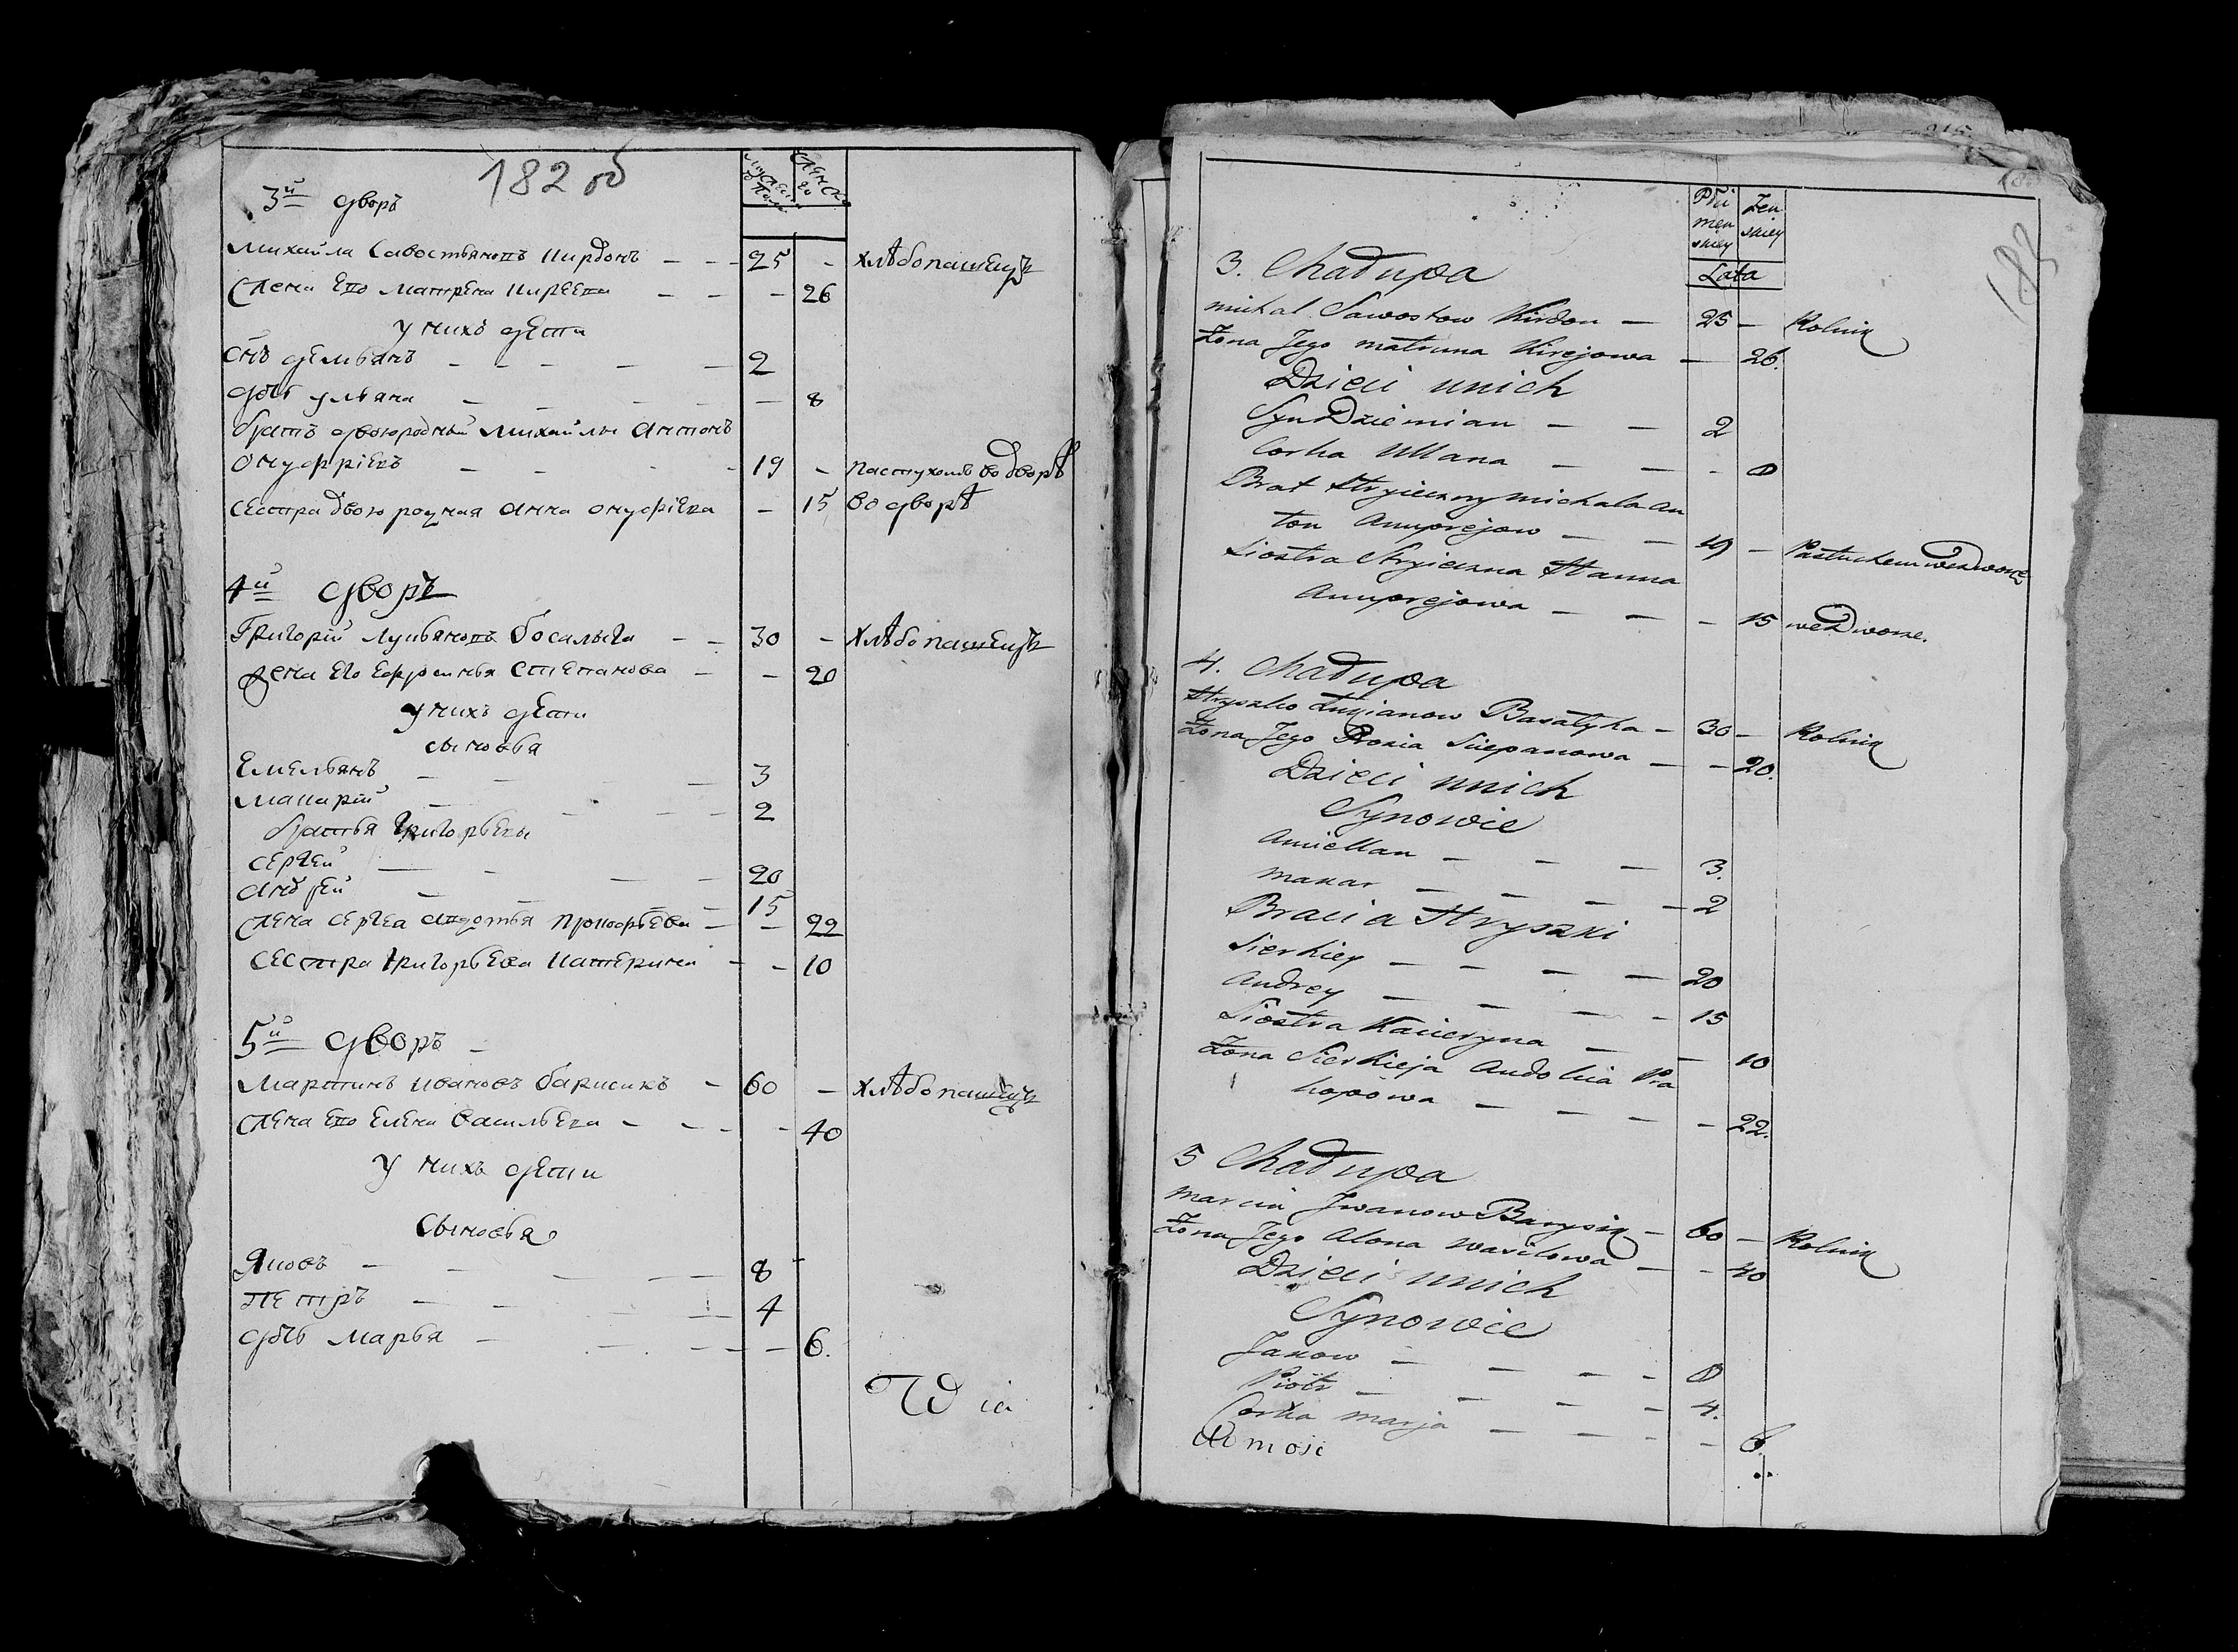 182 об
3й дворъ
Мужеска Пола
Женска го
Михайла Савостьяновъ Кирдонъ — — 25 - хлѣбопашецъ
Жена Его Матрена Кирѣева — — - 26
У нихъ дети
Снъ демьянъ — — — — 2
дочь ульяна — — — — 8
братъ двоюродный Михайлы Антонъ
Онуфріевъ — — - 19 - пастухомъ во дворѣ
сестра двоюродная Анна Онуфріева - 15 во дворѣ
4й дворъ
Григорій Лукьяновъ босалыга — — 30 - хлѣбопашецъ
Жена Его Ефросинья Степанова — - 20
у нихъ дети
сыновья
Емельянъ — — — 3
Макарій — — — — 2
братья Григорьевы
Сергей — — — — 20
Андрей — — — — 15
Жена Сергея Авдотья Прокофьева — - 22
Сестра Григорьева Катерина — - 10
5й дворъ
Мартинъ Ивановъ барисикъ — 60 — хлѣбопашецъ
Жена Его Елена Васильева — — - 40
У нихъ дети
Сыновья
Яковъ — — — — 8
Петръ — — — — 4
дочь Марья — — — — 6.
Wia
183
Płci męn skiey
Żen skiey
Lata
3. Chałupa
Michał Sawostow Kirdon — 25 — Rolnik
Żona Jego Matruna Kirejowa — 26.
Dzieci unich
Syn Dziemian — — 2
Corka Ullana — — - 8
Brat Stryieczny Michała An
ton Anuprejow — — 19 — Pastuchem wedworze
Siostra Stryieczna Hanna
Anuprejowa — — - 15 wedworze.
4. Chałupa
Hryszko Łukjanow Basałyha — 30 — Rolnik
Żona Jego Prosia Sciepanowa — - 20.
Dzieci unich
Synowie
Amiellan — — — 3.
Makar — — — — 2
Bracia Hryszki
Sierhiey — — — — 20
Andrey — — — - 15
Siostra Kacieryna — — 10
Żona Sierhieja Audolia Pra
kopowa — — — - 22.
5 Chałupa
Marcin Jwanow Barysik — 60 — Rolnik
Żona Jego Alona Wasilowa — - 40
Dzieci unich
Synowie
Jakow — — — - 8
Piotr — — — — 4.
Corka Marja — — — - 6.
domosc